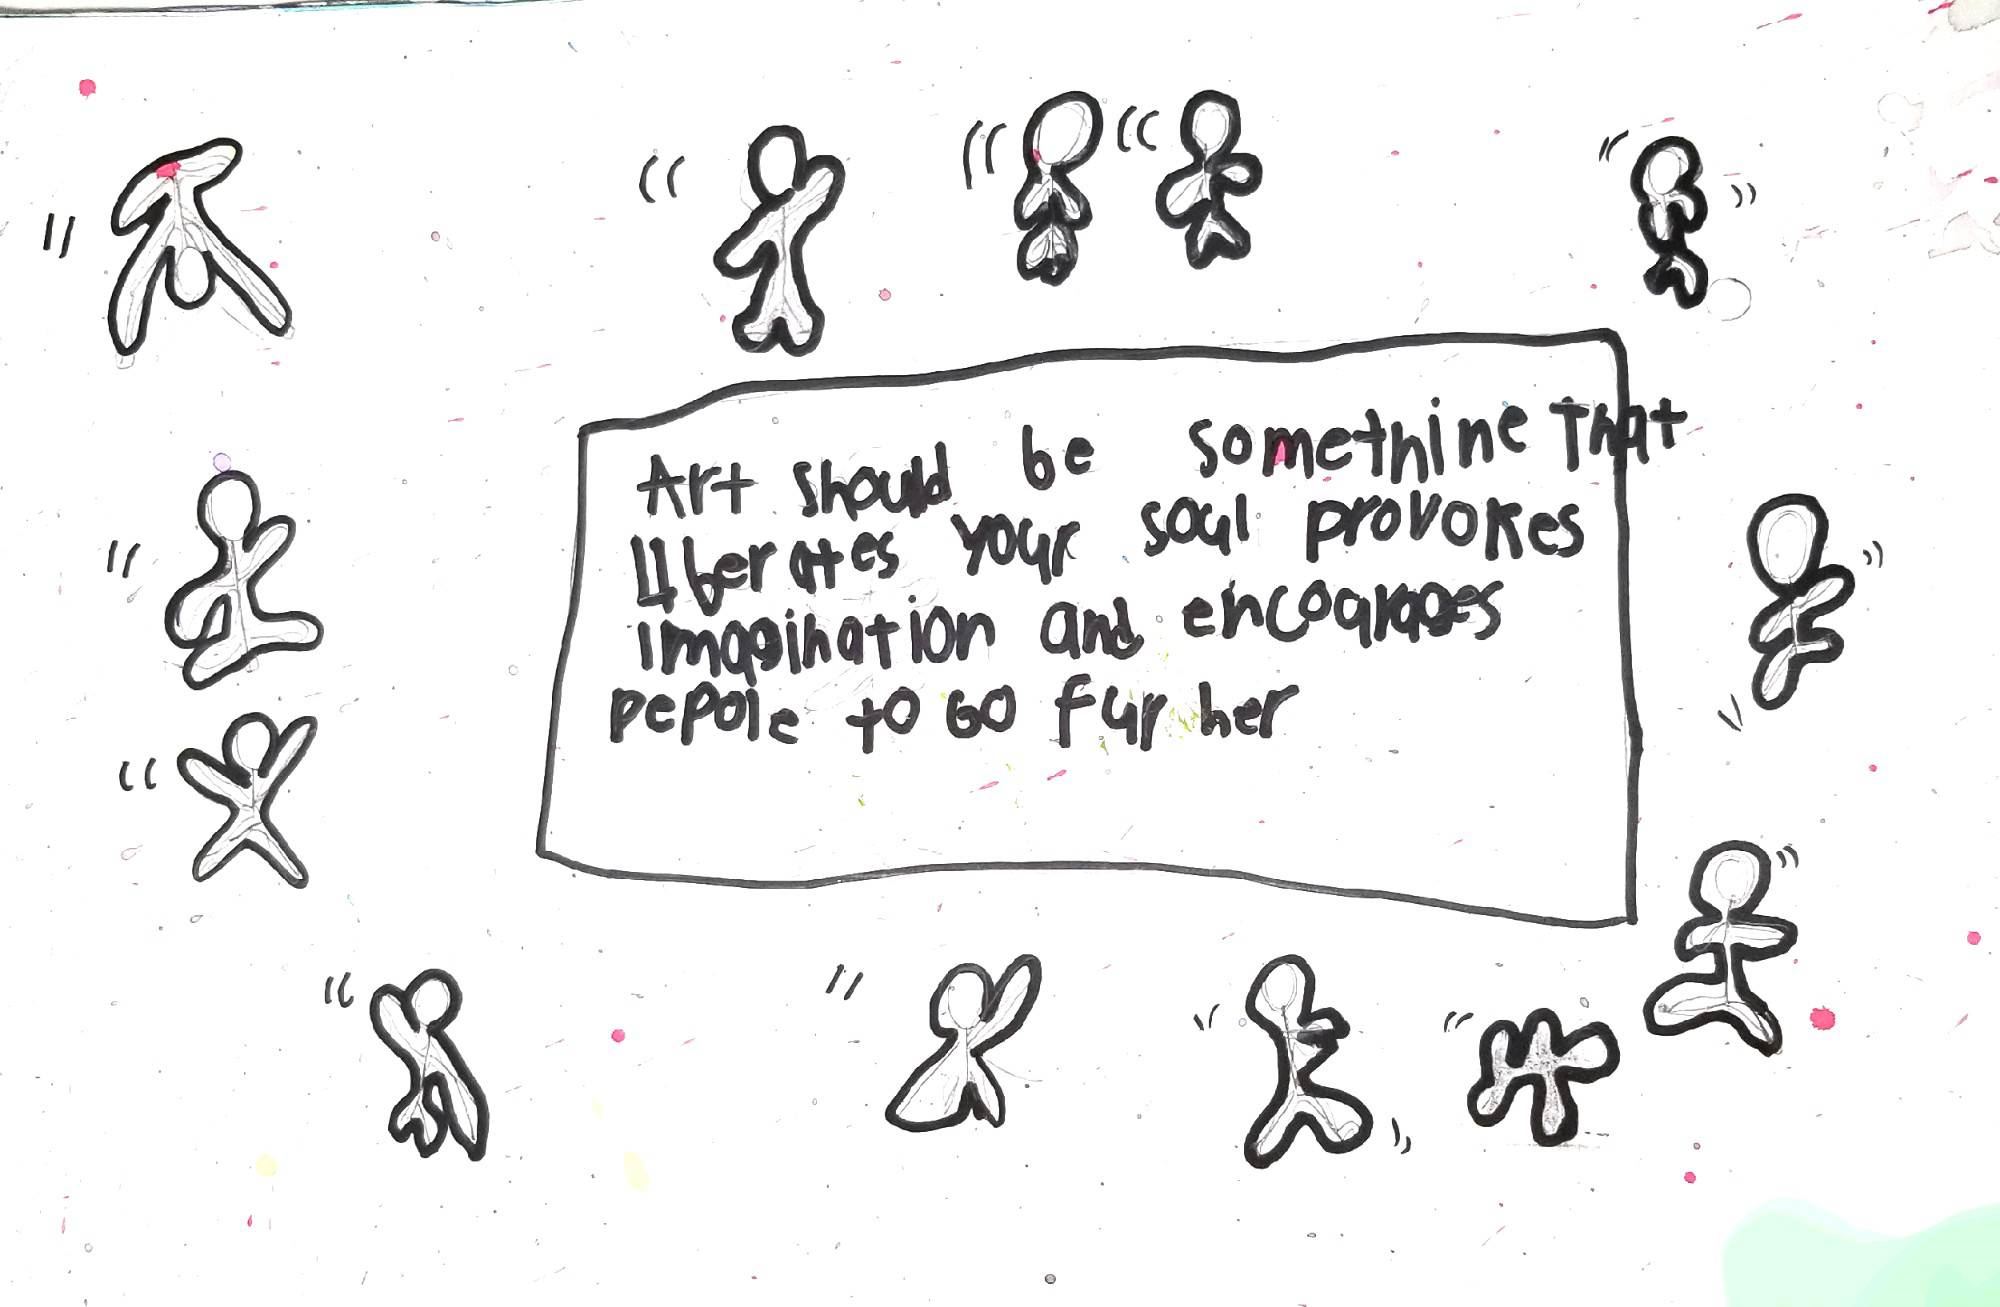 Art should be somethine That
liberates your soul provokes
imagination and encouarages
pepole to Go fur her